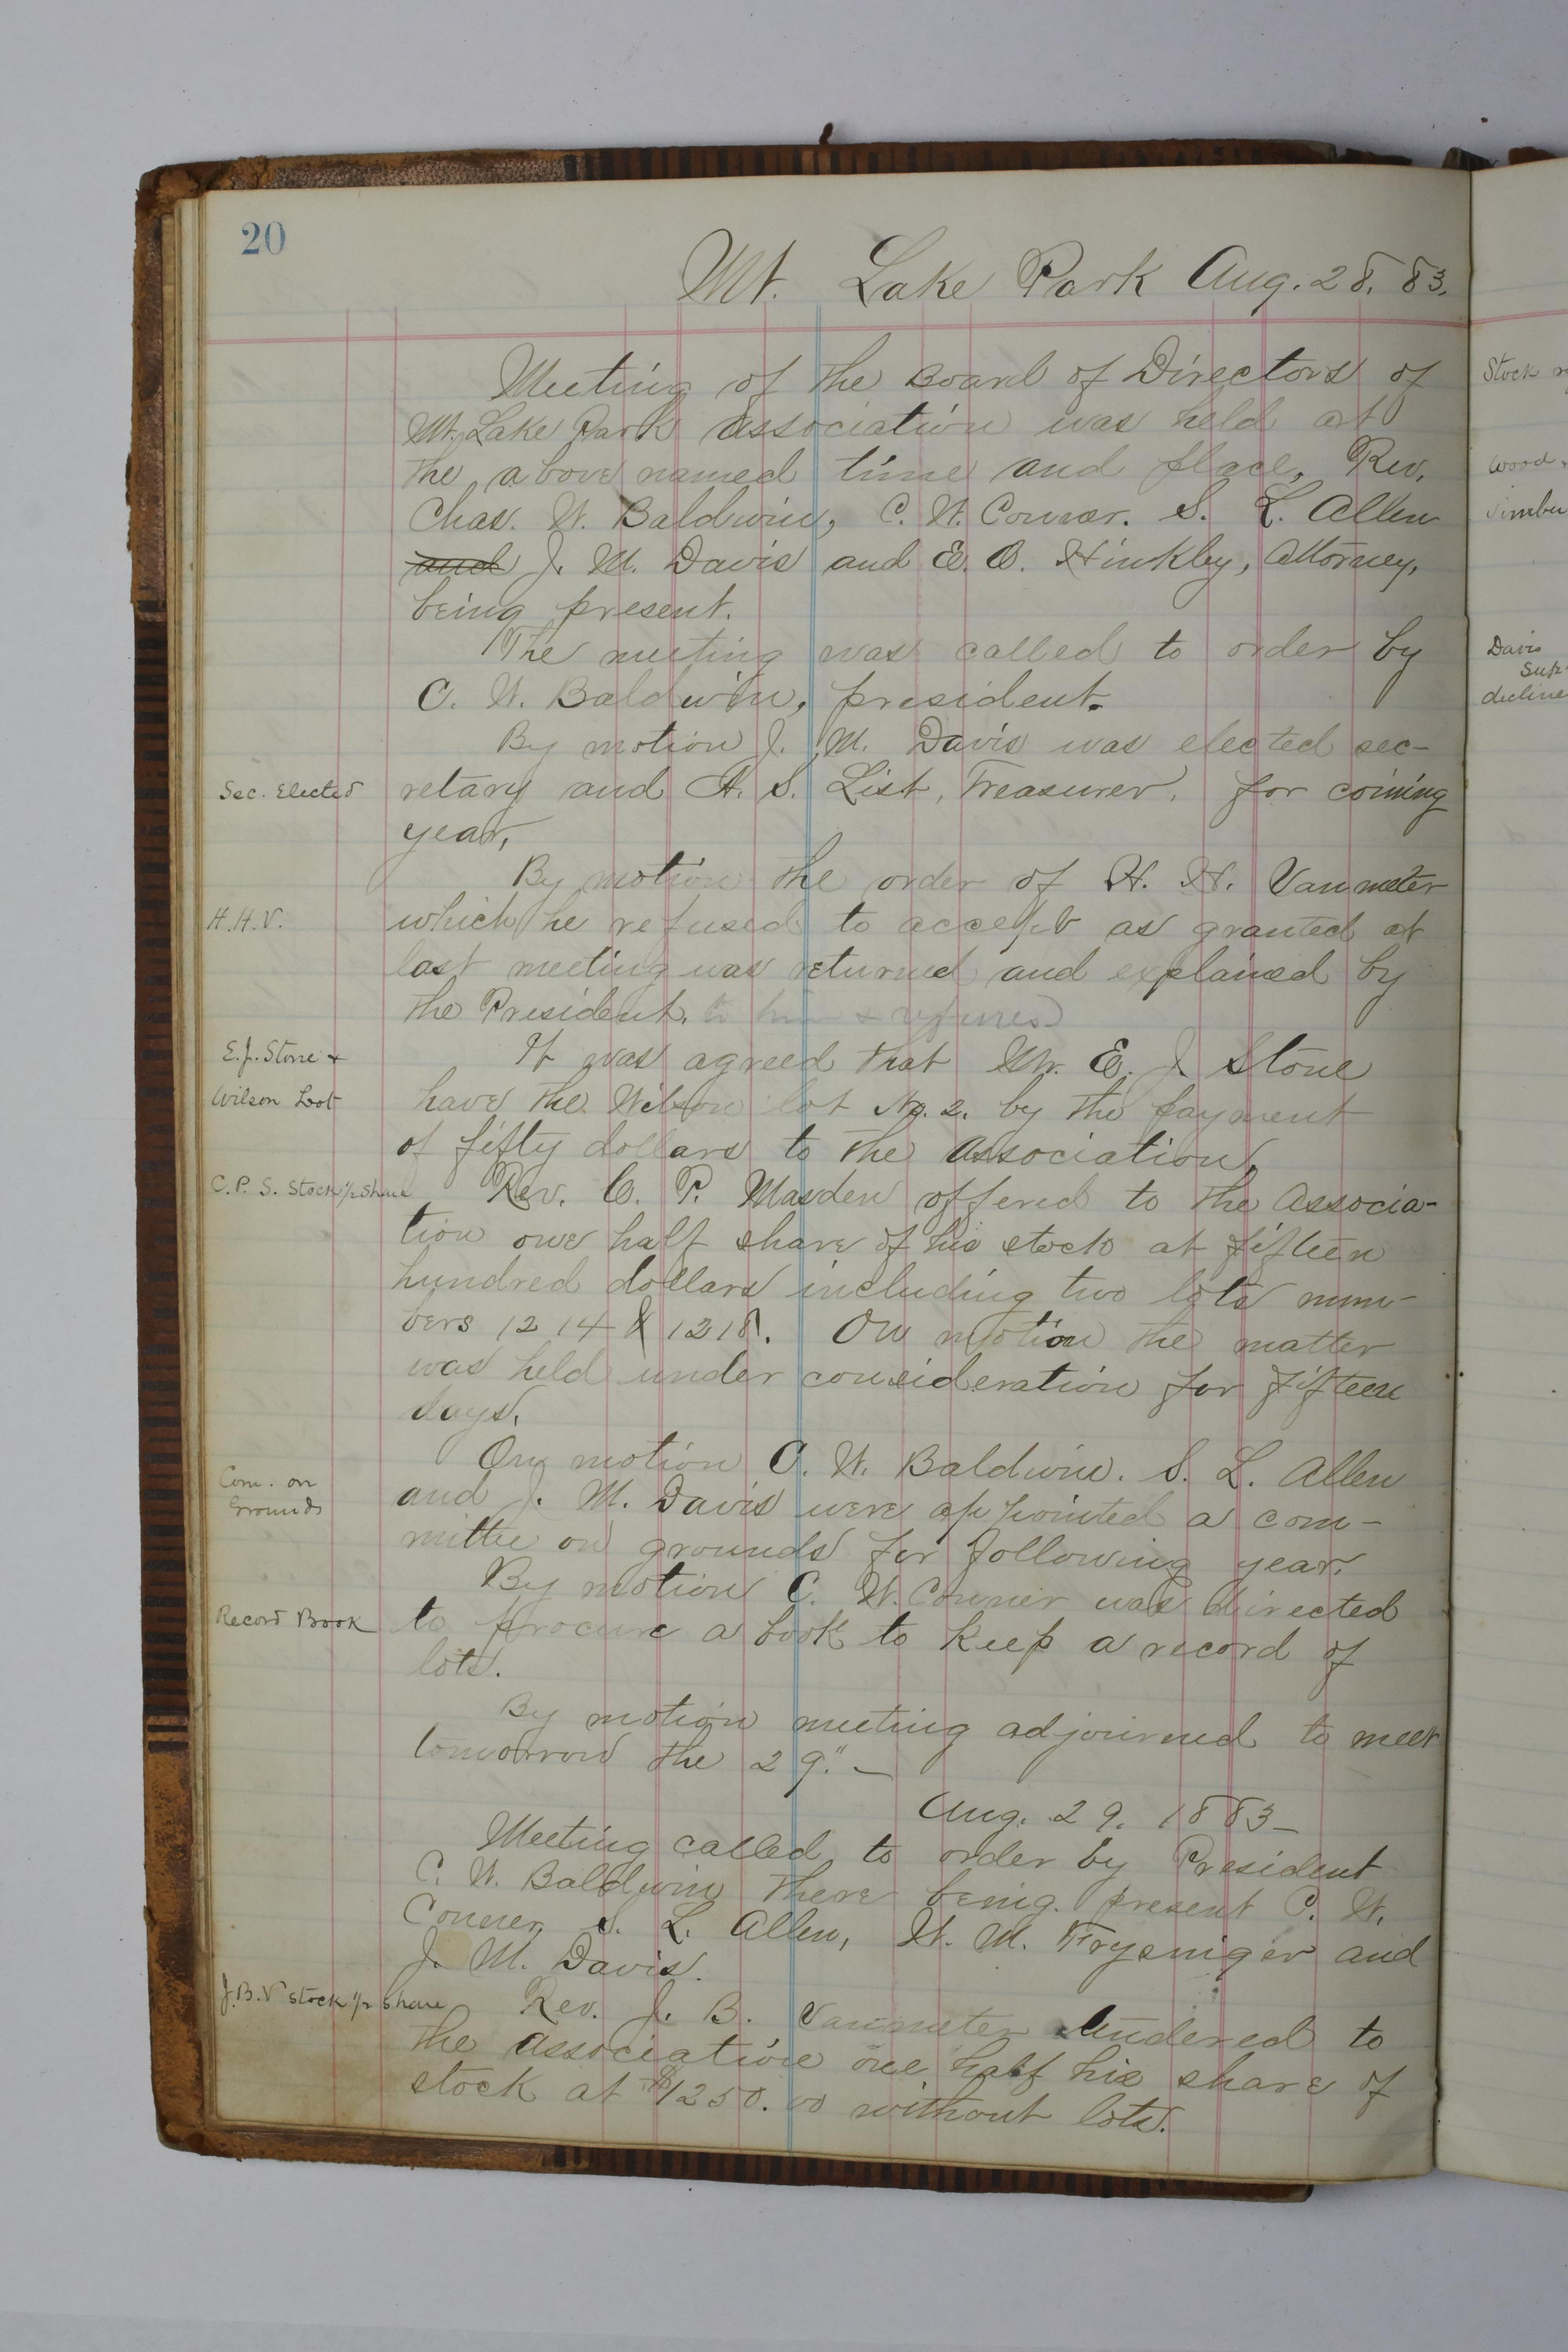 20
Mt. Lake Park Aug. 28. 83.
Meeting of the Board of Directors of
Mt. Lake Park Association was held at
the above named time and place, Rev.
Chas. W. Baldwin, C. W. Conner. S. L. Allen
and J. M. Davis and E. O. Hinkley, Attorney,
being present.
The meeting was called to order by
C. W. Baldwin, president.
By motion J. M. Davis was elected sec-
Sec. Elected
retary and A. S. List, Treasurer, for coming
year,
By motion the order of H. H. Vanmeter
H.H.V.
which he refused to accept as granted at
last meeting was returned and explained by
the President. to him & refused
E.J. Stone +
It was agreed that Mr. E. J. Stone
Wilson Lot
have the Wilson lot No. 2. by the payment
of fifty dollars to the Association,
C. P. S. Stock 1/2 Share
Rev. C. P. Masden offered to the Associa-
tion one half share of his stock at fifteen
hundred dollars including two lots num-
bers 1214 & 1218. On motion the matter
was held under consideration for fifteen
days.
On motion C. W. Baldwin. S. L. Allen
Com. on
Grounds
and J. M. Davis were appointed a com-
mittee on grounds for following year.
By motion C. W. Conner was directed
Record Book
to procure a book to keep a record of
lots.
By motion meeting adjourned to meet
tomorrow the 29." —
Aug. 29. 1883 —
Meeting called to order by President
C. W. Baldwin there being present C. W.
Conner, S. L. Allen, W. M. Frysniger and
J. M. Davis.
J.B.V stock 1/2 share
Rev. J. B. Vanmeter tendered to
the association one half his share of
stock at $1250.00 without lots.
Stock
wood
Davis
Sup.
decline